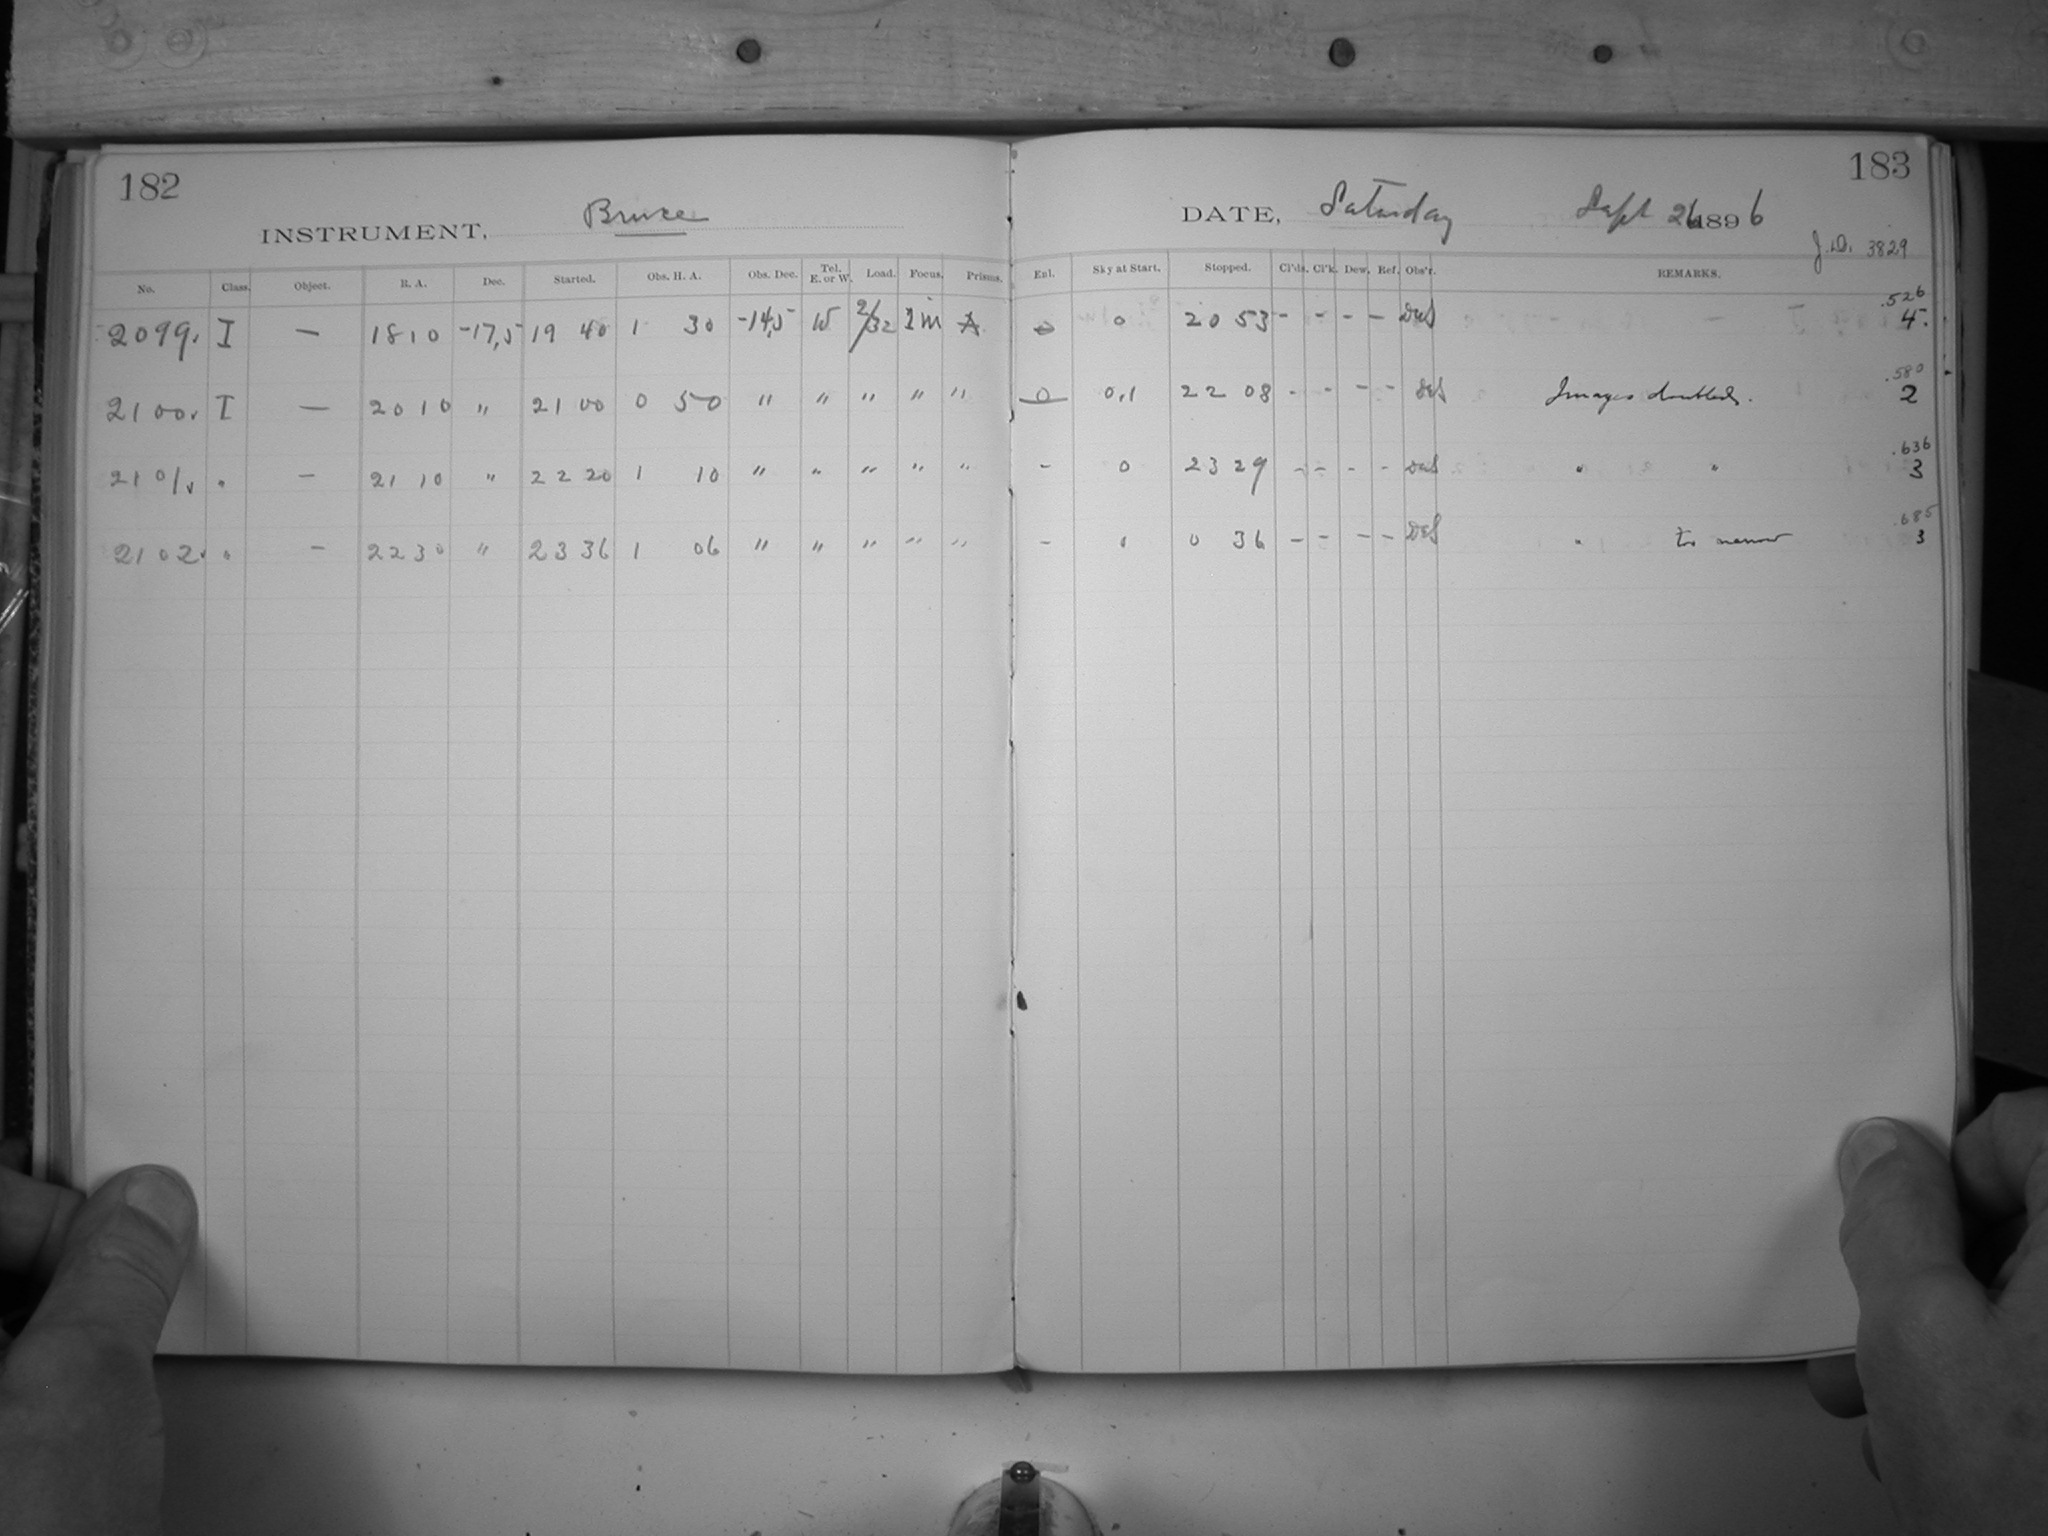 182
183
INSTRUMENT, Bruce
DATE, Saturday Sept 26 1896
J.D. 3829
No. Class. Object. R. A. Dec. Started. Obs. H. A. Obs. Dec. Tel. E. or W. Load. Focus. Prisms. Enl. Sky at Start. Stopped. Cl'ds. Cl'k. Dew. Ref. Obs'r. REMARKS.
.526
2099. I — 18 10 -17,5 19 40 1 30 -14,5 W 2/32 I m A 0 0 20 53 - - - - DeS 4.
.580
2100. I — 20 10 " 21 00 0 50 " " " " " 0 0,1 22 08 - - - - DeS Images doubled. 2
.636
2101. " — 21 10 " 22 20 1 10 " " " " " - 0 23 29 - - - - DeS " " 3
.685
2102. " — 22 30 " 23 36 1 06 " " " " " - 0 36 - - - - DeS " too narrow 3